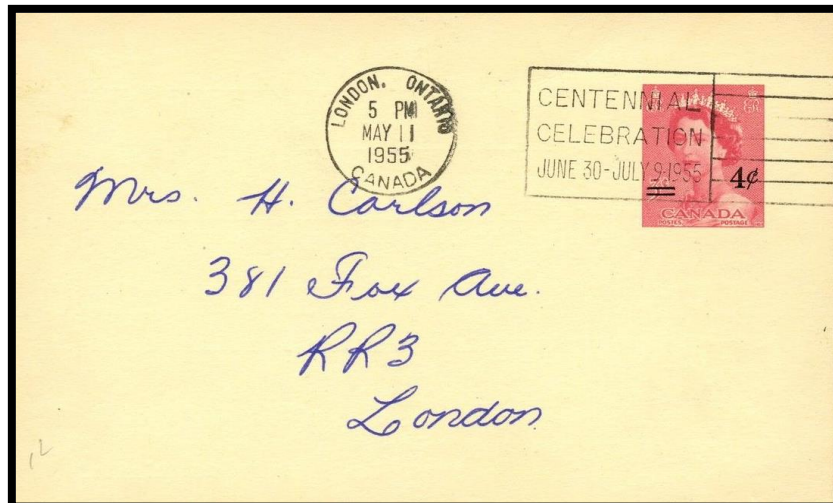 LONDON, ONTARIO
5 PM
MAY 11
1955
CANADA
CENTENNIAL
CELEBRATION
JUNE 30-JULY 9-1955
4¢
CANADA
POSTES POSTAGE
Mrs. H. Carlson
381 Fox Ave.
RR3
London
12